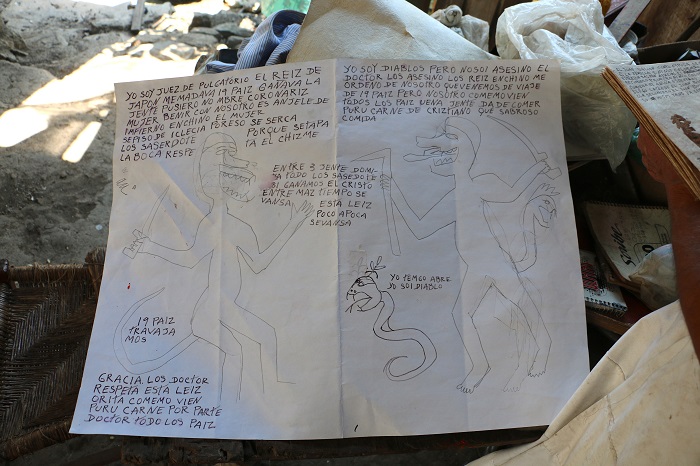 YO SOY JUEZ DE PULGATORIO EL REIZ DE
JAPON MEMADAVO 19 PAIZ GANAVA LA
JENTE PUSIERO NOMBRE CORONARIZ
MUJER BENIR CON NOSOTRO ES ANJELE DE
IMFIERNO ENCHINO EL MUJER
SEPISO DE IGLECIA PORESO SE SERCA
LOS SASERDOTE PORQUE SETAPA
LA BOCA RESPE TA EL CHIZME
ENTRE 3 JENTE DOMI
YA TODO LOS SASEDOTE
SI GANAMOS EL CRISTO
ENTRE MAZ TIEMPO SE
VANSA ESTA LEIZ
POCO APOCA
SEVANSA
19 PAIZ
TRAVAJA
MOS
GRACIA LOS DOCTOR
RESPETA ESTA LEIZ
ORITA COMEMO VIEN
PURU CARNE POR PARTE
DOCTOR TODO LOS PAIZ
YO SOY DIABLOS PERO NOSOI ASESINO EL
DOCTOR LOS ASESINO LOS REIZ ENCHINO ME
ORDENO DE NOSOTRO QUE VENEMOS DE VIAJE
DE 19 PAIZ PERO NOSOTRO COMEMO VIEN
TODOS LOS PAIZ VENA JENTE DA DE COMER
PURU CARNE DE CRIZTIANO QUE SABROSO
COMIDA
YO TEMGO ABRE
YO SOI DIABLO